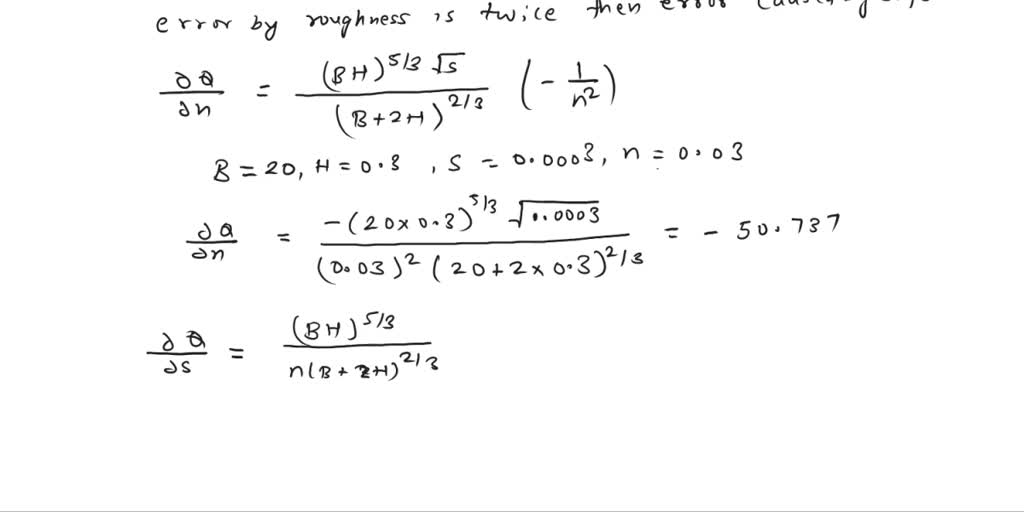 error by roughness is twice then error
∂Q/∂n = (BH)^5/3 √s / (B+2H)^2/3 (- 1/n²)
B = 20, H = 0.3, S = 0.0003, n = 0.03
∂Q/∂n = -(20×0.3)^5/3 √0.0003 / (0.03)² (20+2×0.3)^2/3 = - 50.737
∂Q/∂s = (BH)^5/3 / n(B+2H)^2/3